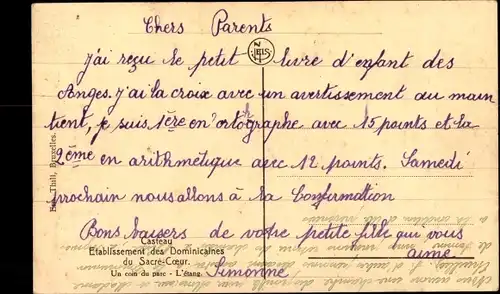 Chers Parents
J'ai reçu le petit livre d'enfant des
Anges. J'ai la croix avec un avertissement au main
tient, je suis 1ère en ortographe avec 15 points et la
2ème en arithmétique avec 12 points. Samedi
prochain nous allons à la Confirmation
Bons baisers de votre petite fille qui vous
aime
Simonne
Casteau
Etablissement des Dominicaines
du Sacré-Cœur.
Un coin du parc - L'étang.
Thill, Bruxelles.